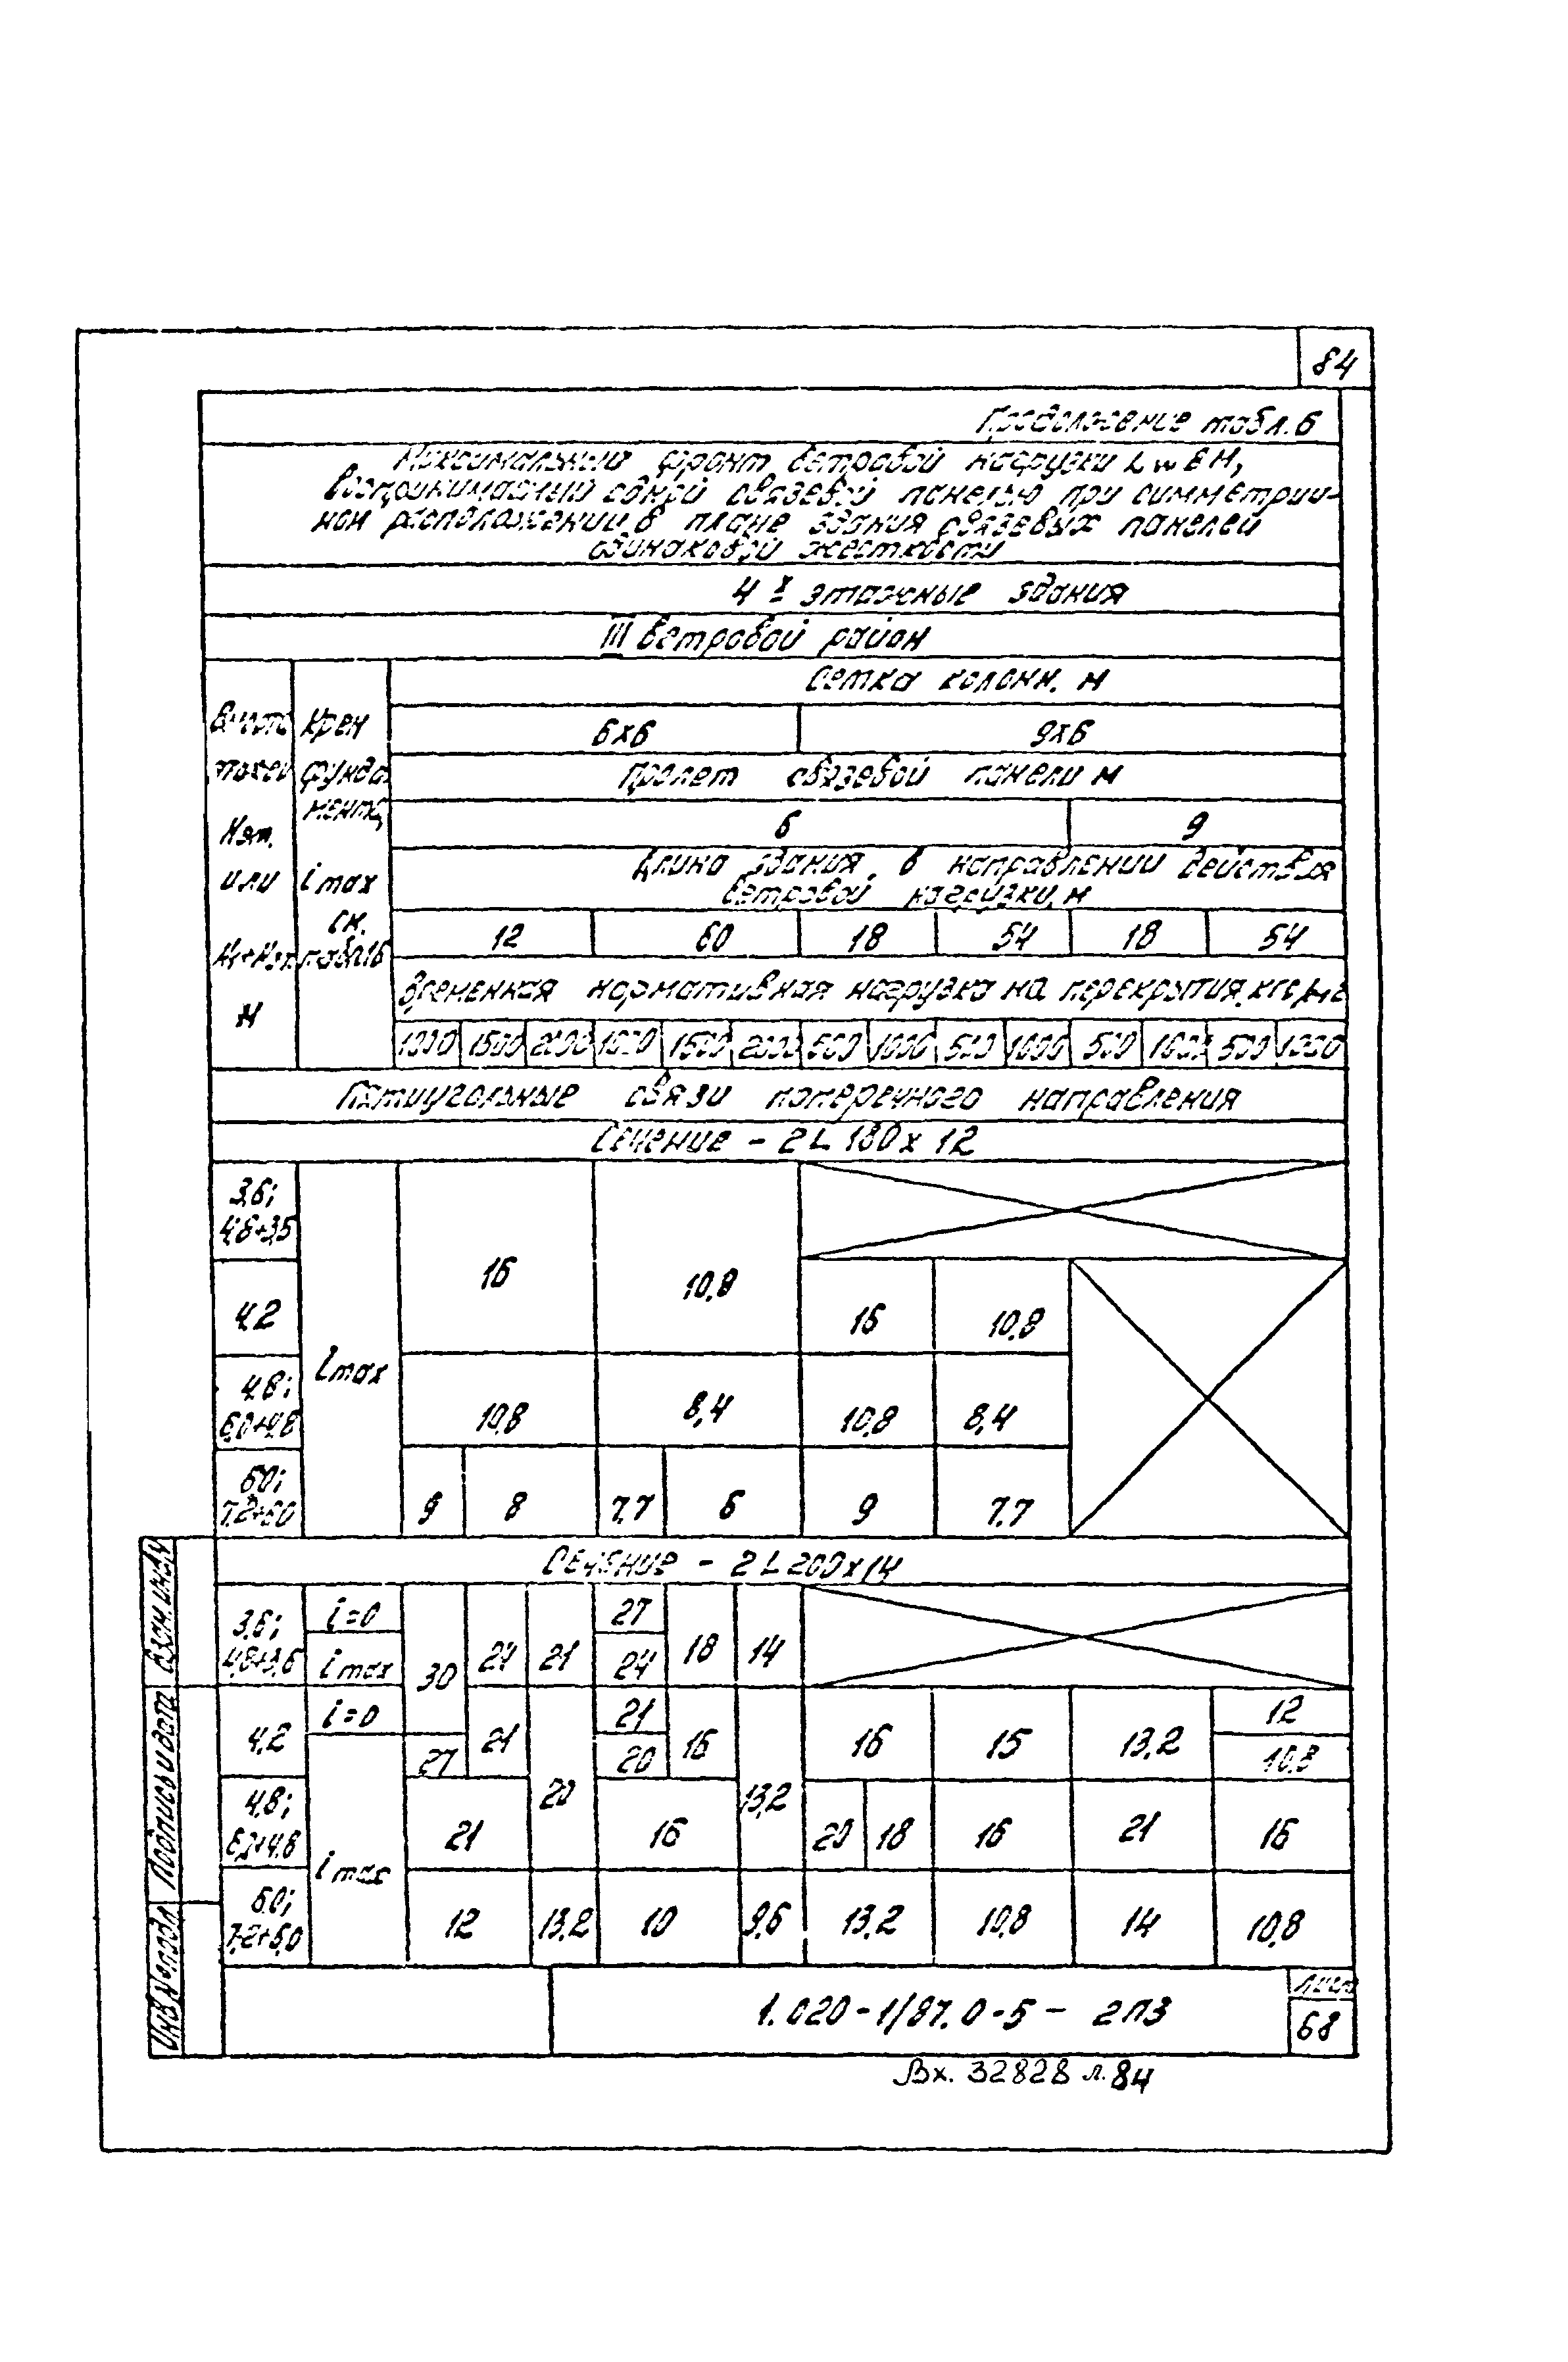 84
Продолжение табл. 6
Максимальный фронт ветровой нагрузки Lw в М,
воспринимаемый одной связевой панелью при симметрич-
ном расположении в плане здания связевых панелей
одинаковой жесткости
4х этажные здания
III ветровой район
Высота этажей Нэт. или Н1+Нэт. М
Крен фунда- мента, imax см. табл.16
Сетка колонн. м
6х6 9х6
Пролет связевой панели м
6 9
Длина здания в направлении действия
ветровой нагрузки, м
12 60 18 54 18 54
Временная нормативная нагрузка на перекрытия, кгс/м2
1000 1500 2000 1000 1500 2000 500 1000 500 1000 500 1000 500 1000
Пятиугольные связи поперечного направления
Сечение - 2L 180х12
3.6;
4,8+3,6
16 10,8
4.2
16 10.8
imax
4.8;
6,0+4,8
10,8 8,4 10,8 8,4
6.0;
7.2+6.0
9 8 7.7 6 9 7.7
Сечение - 2L200х14
3.6;
4,8+3,6
i=0
imax
30 24 21 27 24 18 14
4.2
i=0
27 21 20 21 20 16 13,2 16 15 13,2 12 10.8
4.8;
6,0+4.8
imax
21 16 20 18 16 21 16
6.0;
7.2+6,0
12 13.2 10 9,6 13.2 10,8 14 10,8
Взам. инв.№
Подпись и дата
Инв № подл
1.020-1/87.0-5- 2ПЗ
Лист
68
Вх. 32828 л. 84